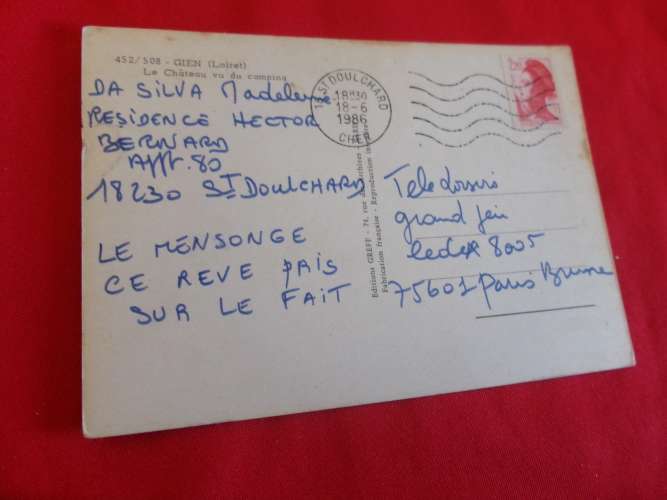 452/508 - GIEN (Loiret)
Le Château vu du camping
DA SILVA Madeleine
RESIDENCE HECTOR
BERNARD
Appt. 80
18230 ST DOULCHARD
LE MENSONGE
CE REVE PRIS
SUR LE FAIT
18 ST DOULCHARD
18H30
18-6
1986
CHER
2,20
Editions GREFF - 74, rue
Fabrication française - Reproduction
Tele Loisirs
grand jeu
cedex 8005
75601 Paris Brune